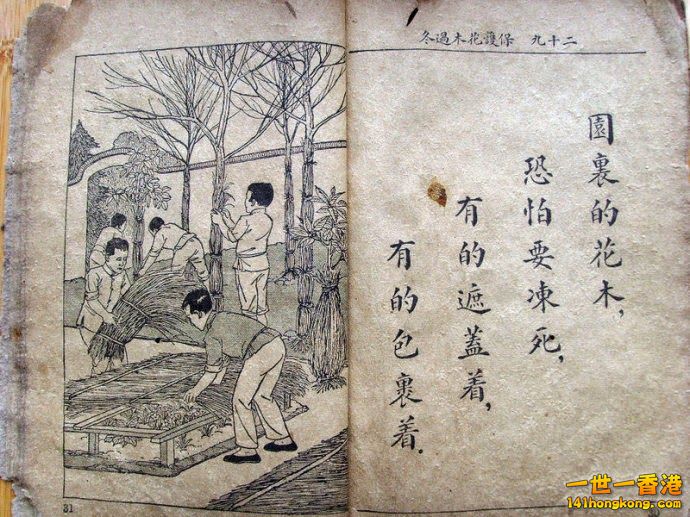 二十九 保護花木過冬
園裏的花木，
恐怕要凍死，
有的遮蓋着，
有的包裹着．
31
一世一香港
141hongkong.com